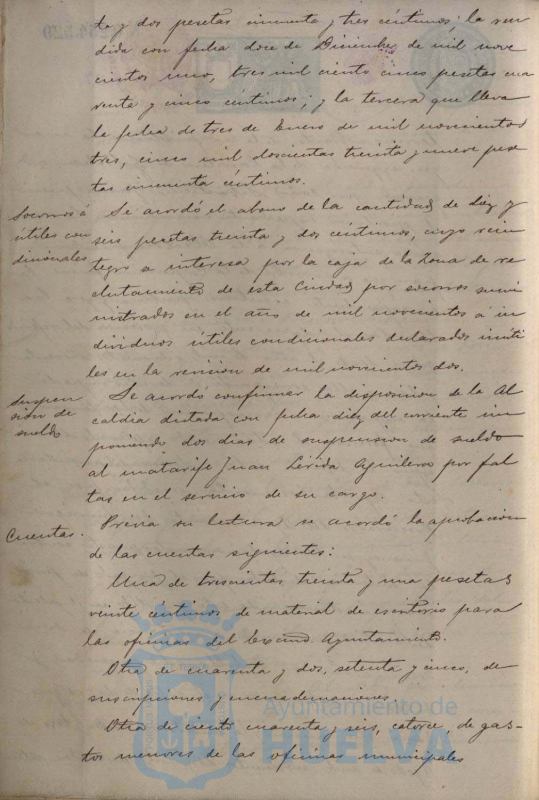 ta y dos pesetas cincuenta y tres céntimos; la ren
dida con fecha doce de Diciembre de mil nove
cientos uno, tres mil ciento cinco pesetas cua
renta y cinco céntimos; y la tercera que lleva
la fecha de tres de Enero de mil novecientos
tres, cinco mil doscientas treinta y nueve pese
tas cincuenta céntimos.
Socorros á
útiles con
dicionales
Se acordó el abono de la cantidad de diez y
seis pesetas treinta y dos céntimos, cuyo rein
tegro se interesa por la caja de la Zona de re
clutamiento de esta Ciudad por socorros sumi
nistrados en el año de mil novecientos á in
dividuos útiles condicionales declarados inúti
les en la revision de mil novecientos dos.
Suspen
sión de
sueldo
Se acordó confirmar la disposicion de la Al
caldia dictada con fecha diez del corriente im
poniendo dos dias de suspension de sueldo
al matarife Juan Lérida Aguilera por fal
tas en el servicio de su cargo.
Cuentas.
Prévia su lectura se acordó la aprobacion
de las cuentas siguientes:
Una de trescientas treinta y una pesetas
veinte céntimos de material de escritorio para
las oficinas del Excmo Ayuntamiento.
Otra de cuarenta y dos, setenta y cinco, de
suscripciones y encuadernaciones.
Otra de ciento cuarenta y seis, catorce, de gas-
tos menores de las oficinas municipales
Ayuntamiento de
HUELVA